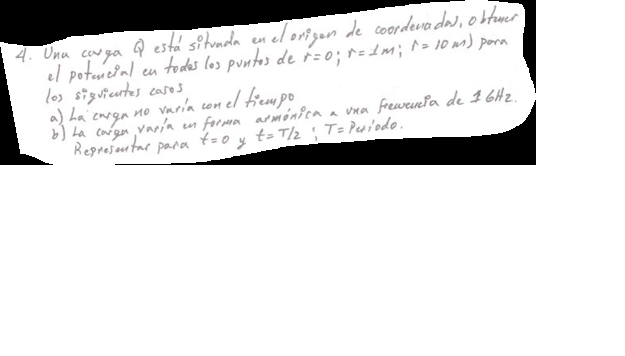 4. Una carga Q está situada en el origen de coordenadas, obtener
el potencial en todos los puntos de r=0; r=1m; r=10m) para
los siguientes casos
a) La carga no varía con el tiempo
b) La carga varía en forma armónica a una frecuencia de 1GHz.
Representar para t=0 y t=T/2; T=Período.